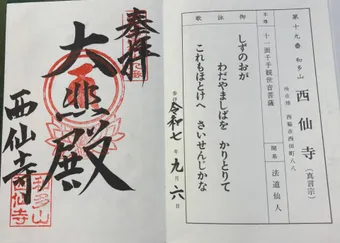 第十九番 和多山
西仙寺(真言宗)
所在地 西脇市西田町八八
本尊
十一面千手観世音菩薩
開基
法道仙人
御詠歌
しずのおが
わだやましばを かりとりて
これもほとけへ さいせんじかな
令和七年九月六日
奉拝
大悲殿
西仙寺
和多山
西仙寺